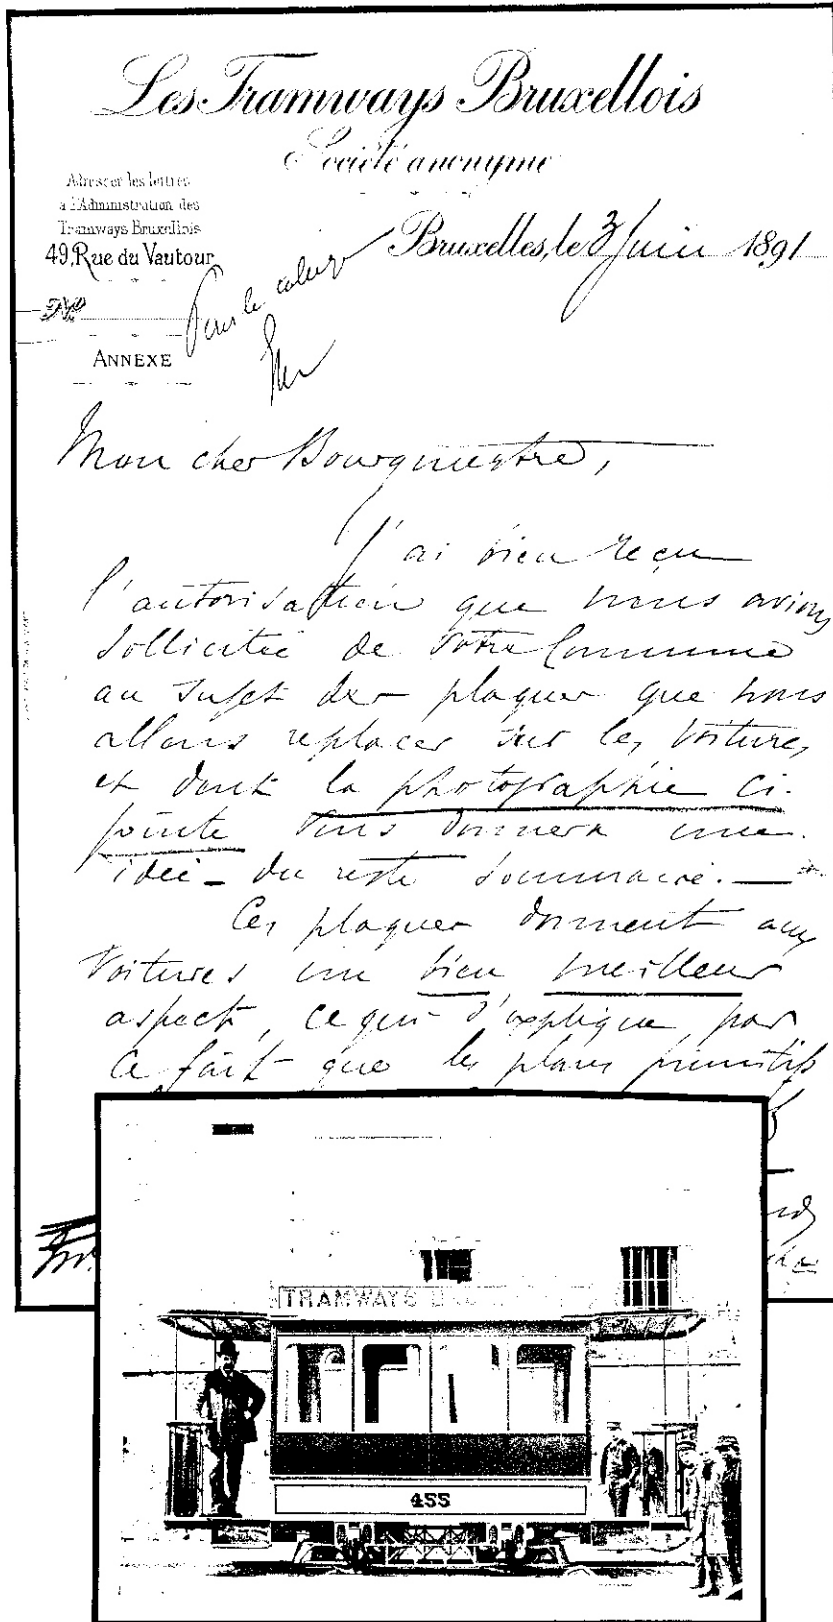 Les Tramways Bruxellois
Société anonyme
Adresser les lettres
à l'Administration des
Tramways Bruxellois
49, Rue du Vautour
Bruxelles, le 3 Juin 1891
No
Pour le
ANNEXE
Mon cher Bourgmestre,
J'ai bien reçu
l'autorisation que nous avions
sollicitée de votre Commune
au sujet des plaques que nous
allons replacer sur les voitures
et dont la photographie ci-
jointe vous donnera une
idée du reste sommaire. —
Ces plaques donnent aux
voitures un bien meilleur
aspect, ce qui s'explique par
ce fait que les plans primitifs
TRAMWAYS
455